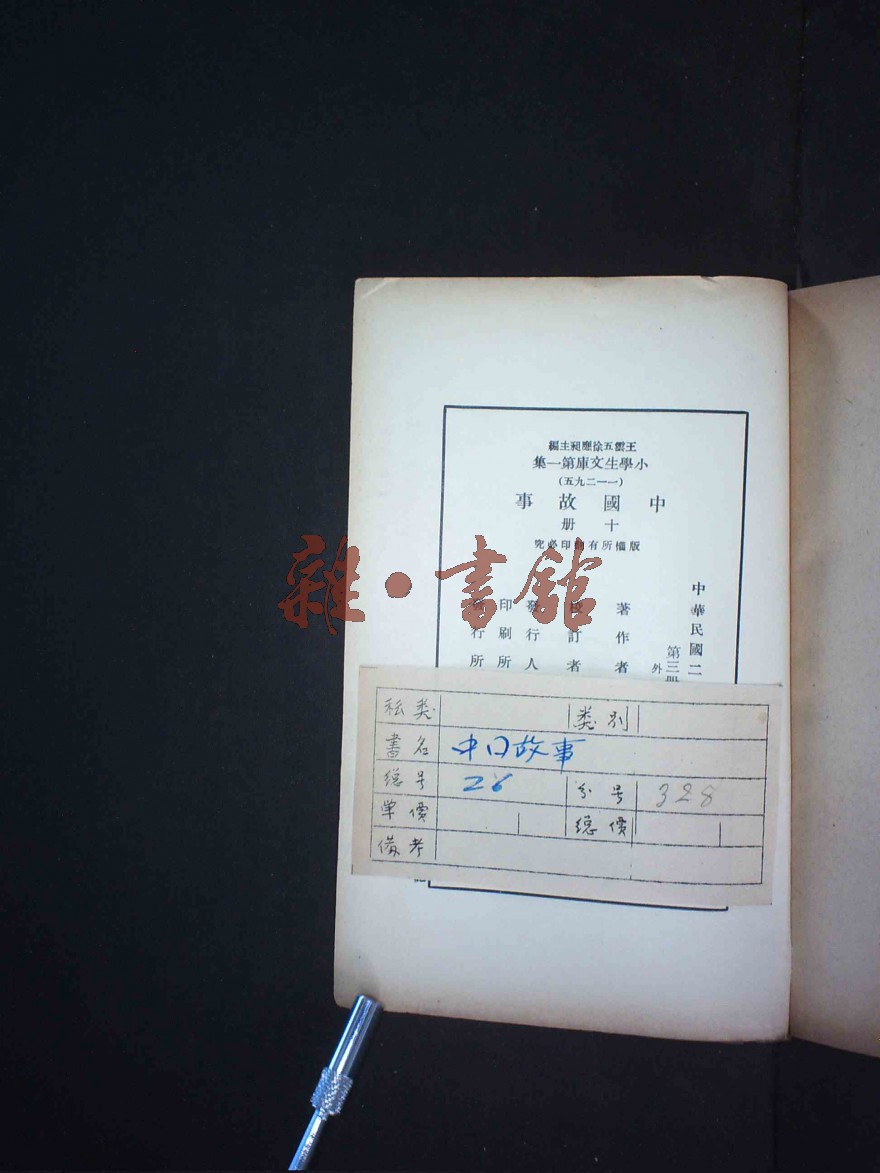 王雲五徐應昶主編
小學生文庫第一集
(一一二九五)
中國故事
十册
版權所有翻印必究
中華民國二
第三册
外
著作者
校訂者
發行人
印刷所
發行所
雜·書館
秐类
类别
書名 中囗故事
總号 26
分号 328
单價
總價
備考